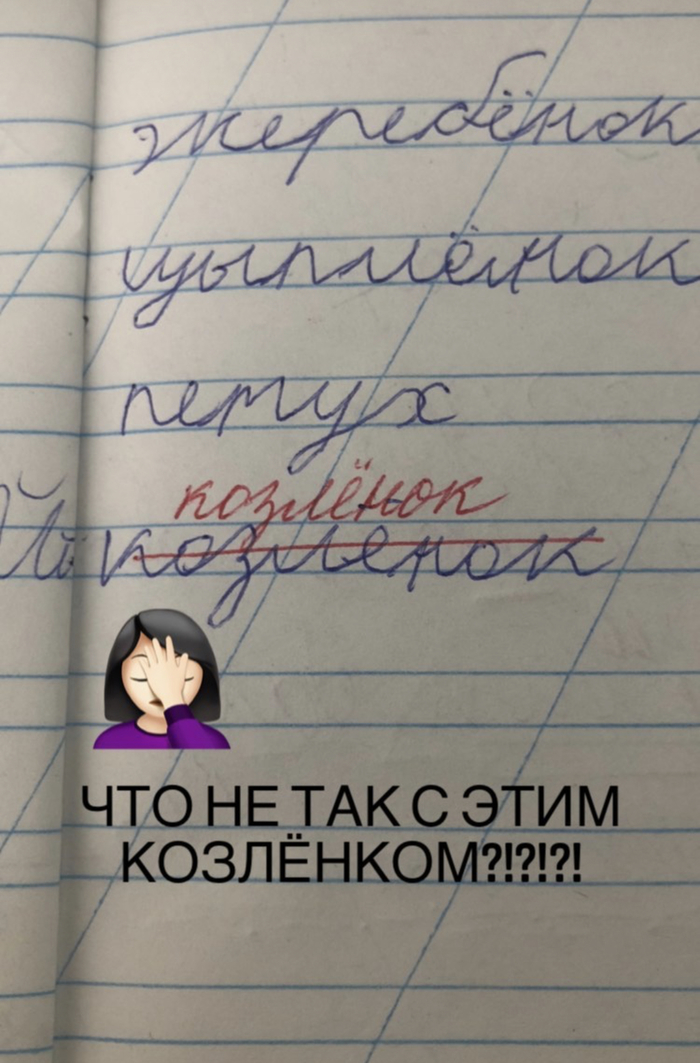 жеребёнок
цыплёнок
петух
козлёнок
козленок
ЧТО НЕ ТАК С ЭТИМ
КОЗЛЁНКОМ?!?!?!